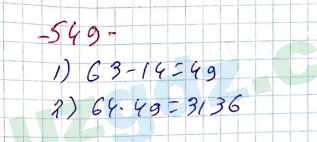 -549-
1) 63-14=49
2) 64·49=3136